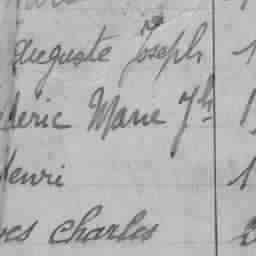 Auguste Joseph 1
déric Marie Th 1
Henri 1
ves Charles 2